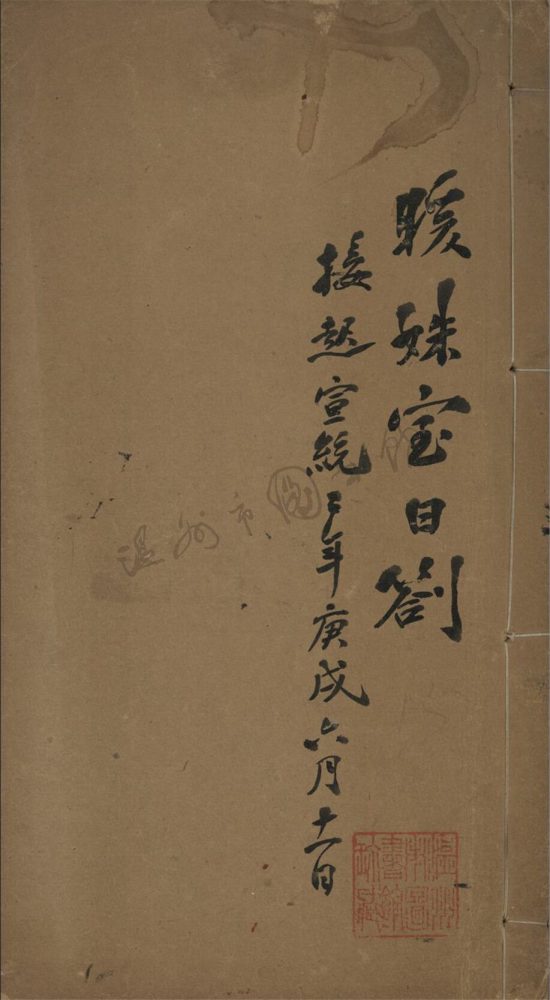 暖姝室日劄
接起宣統二年庚戌六月十一日
温州市圖
温州市圖書館珍藏